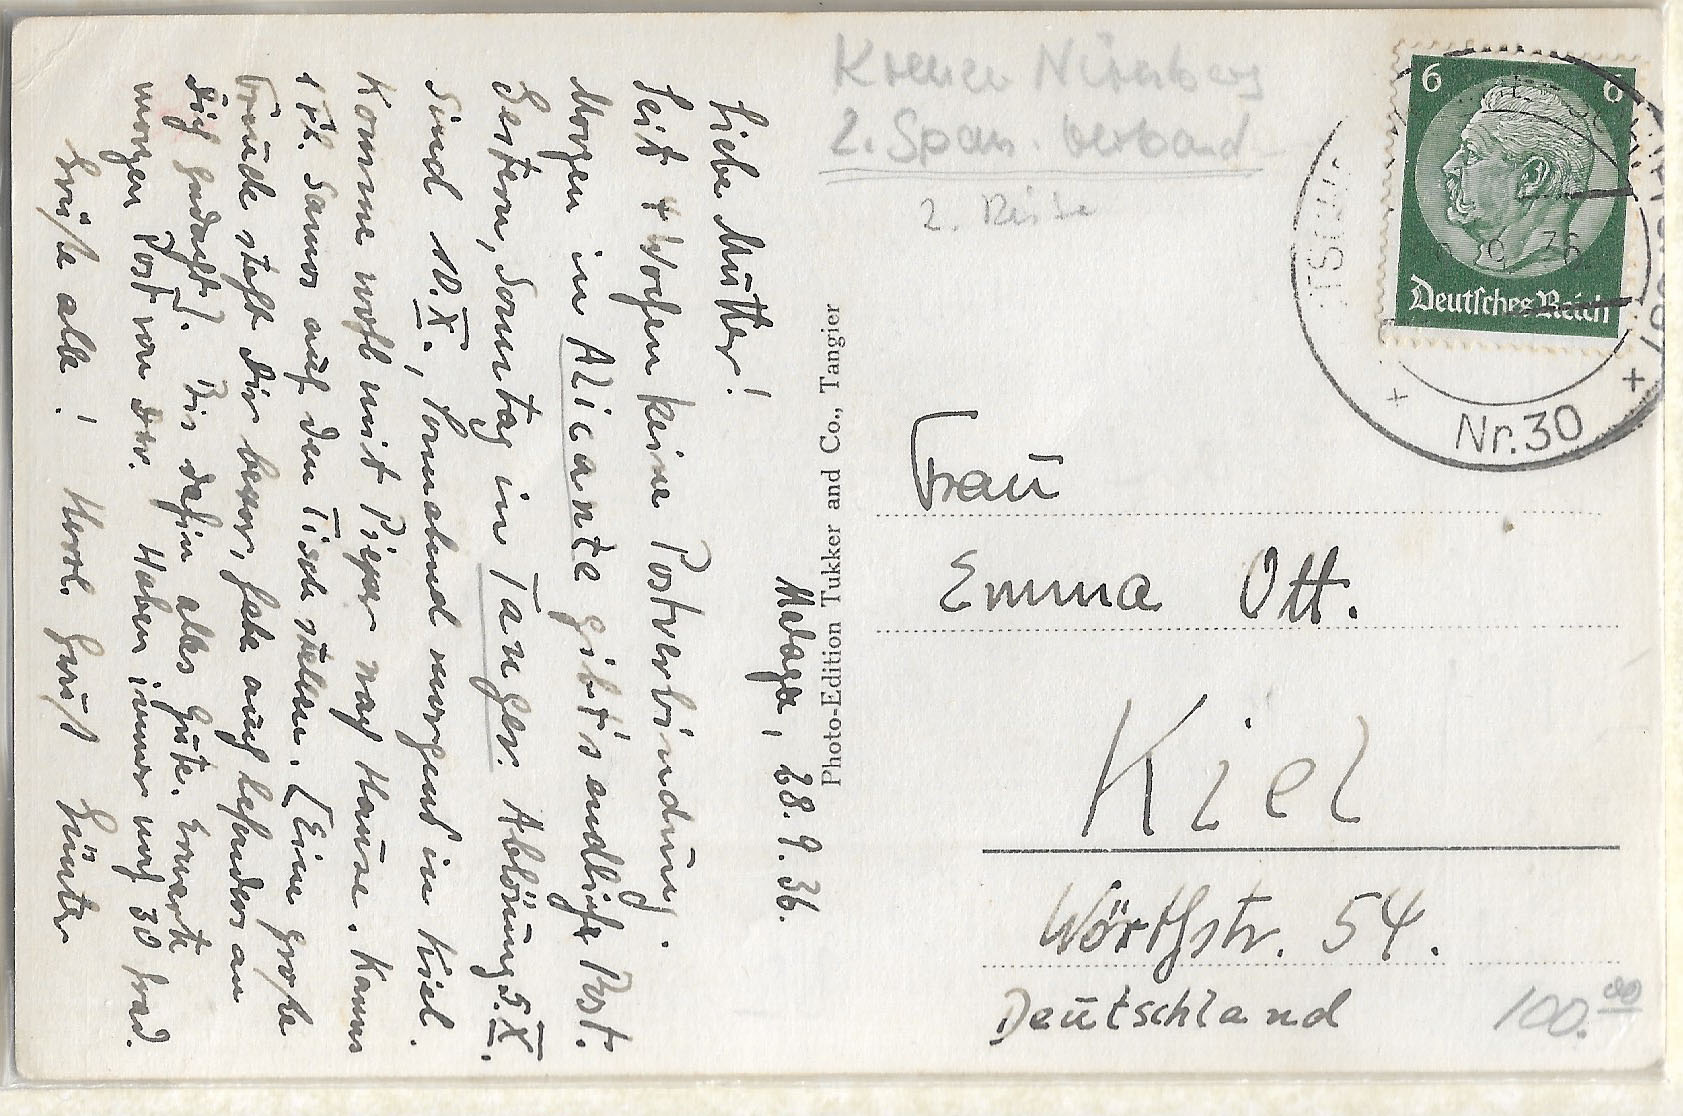 Kreuzer Nürnberg
2. Span. Verband
2. Reise
6 6
Deutsches Reich
Nr. 30
Malaga, 28.9.36.
Liebe Mutter!
Seit Wochen keine Postverbindung.
Morgen in Alicante gibt's endlich Post.
Gestern, Sonntag in Tanger. Ablösung 5.X.
Sind 10.X., Sonnabend morgend in Kiel.
Komme wohl mit Pieper nach Hause. Kanns
Samos auf den Tisch stellen. [Eine große
Freude steht dir bevor, habe auch besonders an
dich gedacht]. Bis dahin alles Gute. Erwarte
morgen Post von dir. Haben immer noch 30 Grad.
Grüße alle! Herzl. Gruß Günter
Photo-Edition Tukker and Co., Tangier
Frau
Emma Ott.
Kiel
Wörthstr. 54.
Deutschland
100.00